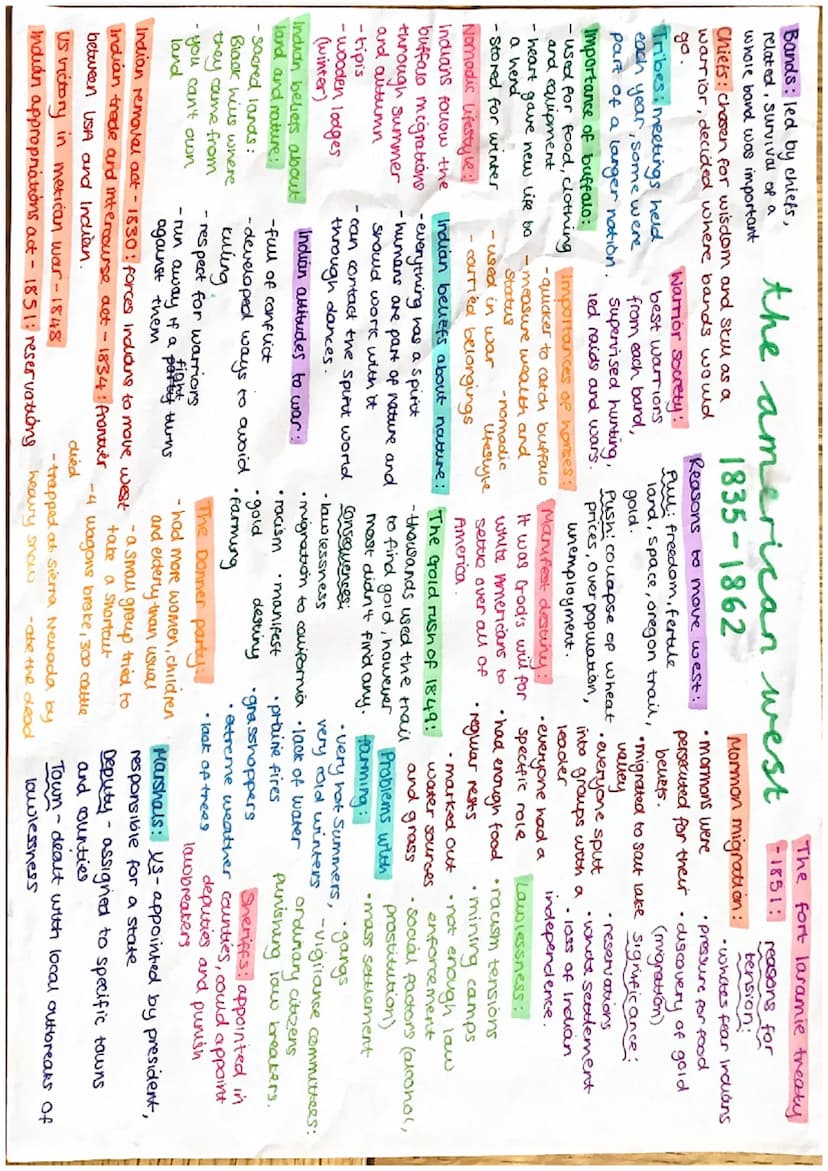 the american west
1835-1862
Bands: led by chiefs,
related, survival of a
whole band was important
Chiefs: chosen for wisdom and skill as a
warrior, decided where bands would
go.
Tribes: meetings held
each year, some were
part of a larger nation.
Importance of buffalo:
-used for food, clothing
and equipment
-heart gave new life to
a herd
-stored for winter
Nomadic lifestyle:
Indians follow the
buffalo migrations
through summer
and autumn
-tipis
-wooden lodges
(winter)
Indian beliefs about
land and nature:
-sacred lands:
Black hills where
they came from
-you can't own
land
Warrior society:
best warriors
from each band,
supervised hunting,
led raids and wars.
Importances of horses:
-quicker to catch buffalo
-measure wealth and
status
-nomadic
lifestyle
-used in war
-carried belongings
Indian beliefs about nature:
-everything has a spirit
-humans are part of nature and
should work with it
-can contact the spirit world
through dances.
Indian attitudes to war:
-full of conflict
-developed ways to avoid
killing
-respect for warriors
-run away if a fight turns
against them
Indian removal act - 1830: forces Indians to move west
Indian trade and intercourse act - 1834: frontier
between USA and Indian.
US victory in mexican war - 1848
Indian appropriations act - 1851: reservations
Reasons to move west:
Pull: freedom, fertile
land, space, oregon trail,
gold.
Push: collapse of wheat
prices, over population,
unemployment.
Manifest destiny:
It was God's will for
white Americans to
settle over all of
America.
The Gold rush of 1849:
-thousands used the trail
to find gold, however
most didn't find any.
Consequences:
•lawlessness
•migration to california
•racism •manifest
destiny
•gold
•farming
The Donner party:
-had more women, children
and elderly than usual
-a small group tried to
take a shortcut
-4 wagons broke, 300 cattle
died
-trapped at sierra Nevada by
heavy snow -ate the dead
Mormon migration:
•mormons were
persecuted for their
beliefs.
•migrated to salt lake
valley
•everyone split
into groups with a
leader
•everyone had a
specific role
•had enough food
•regular rests
•marked out
water sources
and grass
Problems with
farming:
•very hot summers,
very cold winters
•lack of water
•prairie fires
•grasshoppers
•extreme weather
•lack of trees
The fort laramie treaty
-1851:
reasons for
tension:
•whites fear Indians
•pressure for food
•discovery of gold
(migration)
significance:
•reservations
•white settlement
•loss of Indian
independence.
Lawlessness:
•racism tensions
•mining camps
•not enough law
enforcement
•social factors (alcohol,
prostitution)
•mass settlement
•gangs
-vigilance committees:
ordinary citizens
punishing law breakers.
Sheriffs: appointed in
counties, could appoint
deputies and punish
lawbreakers
Marshals: US-appointed by president,
responsible for a state
Deputy - assigned to specific towns
and counties
Town - dealt with local outbreaks of
lawlessness